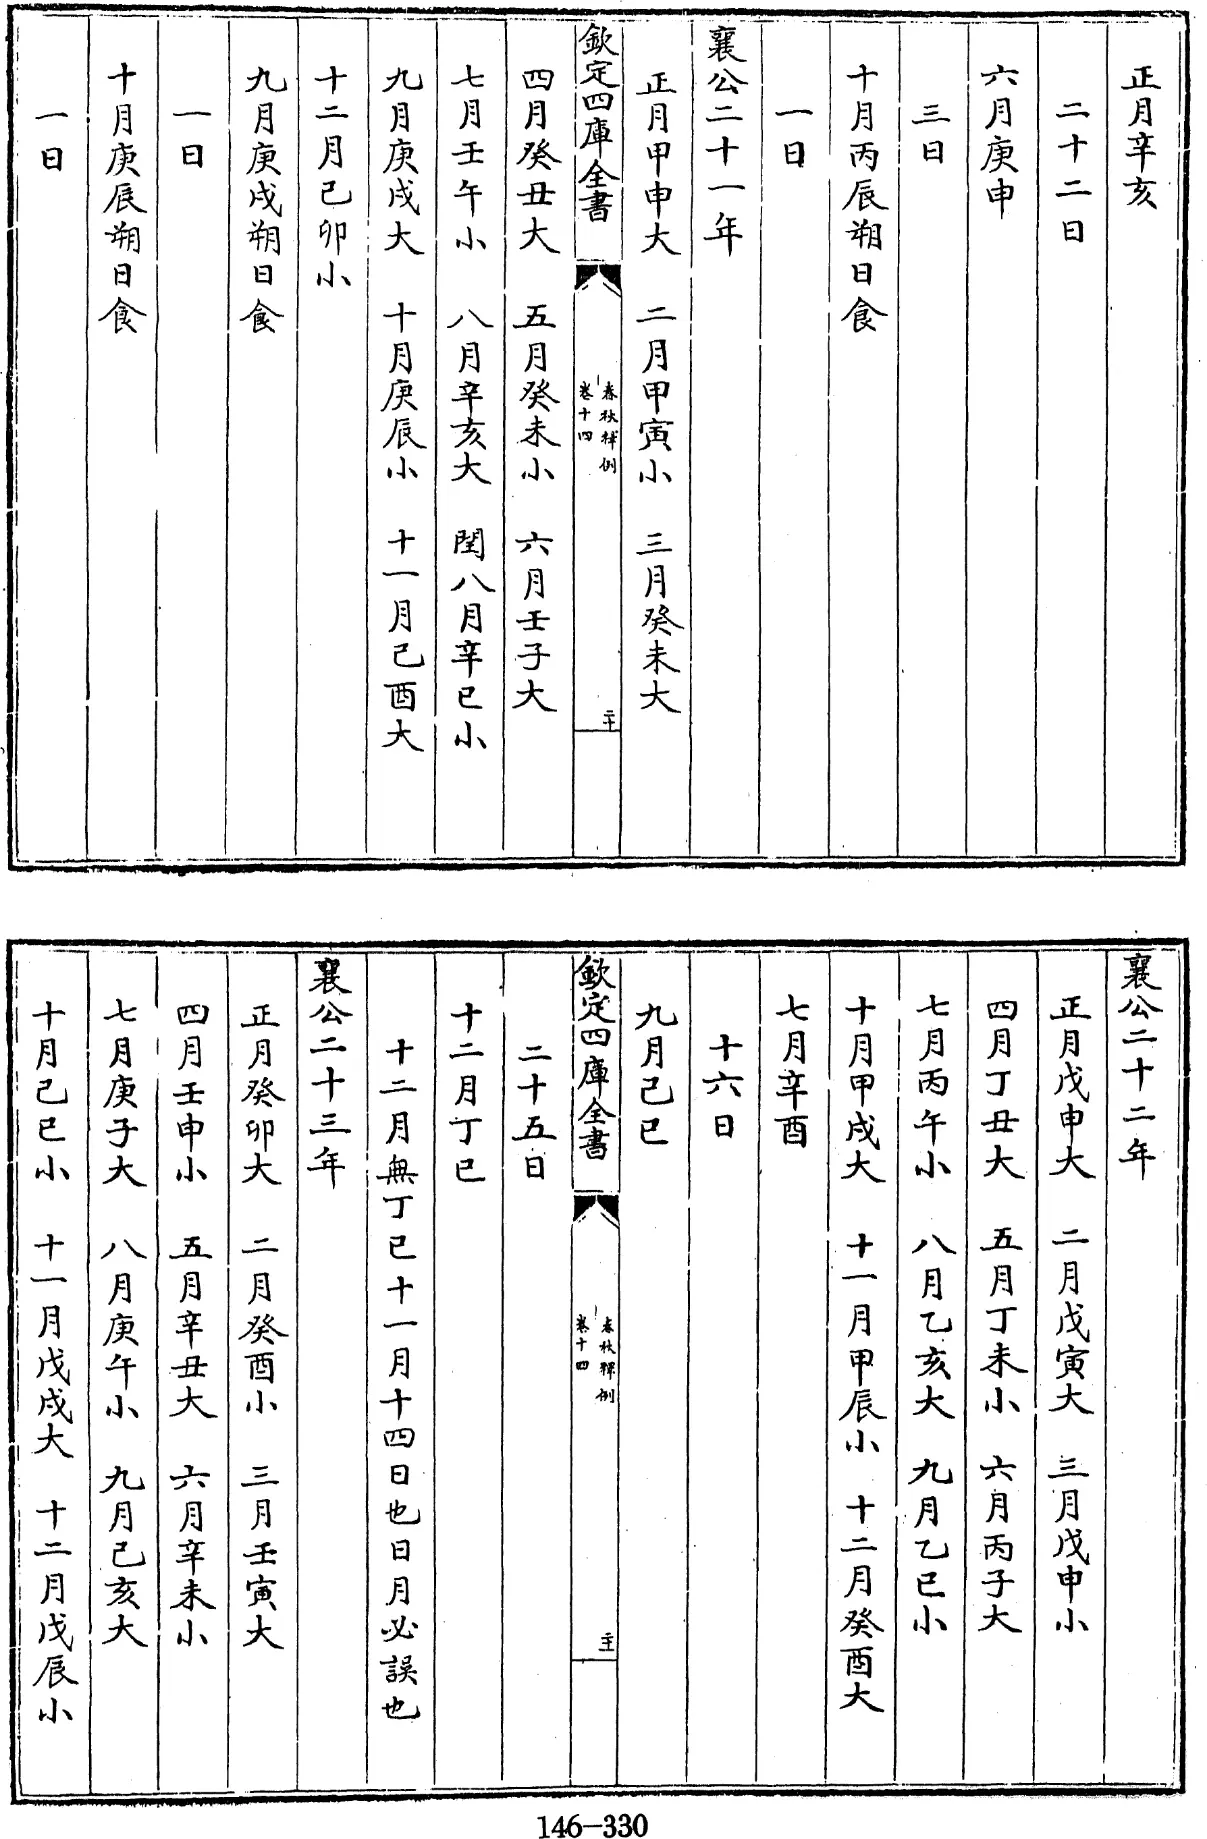 正月辛亥
二十二日
六月庚申
三日
十月丙辰朔日食
一日
襄公二十一年
正月甲申大　二月甲寅小　三月癸未大
欽定四庫全書
春秋釋例
卷十四
二十
四月癸丑大　五月癸未小　六月壬子大
七月壬午小　八月辛亥大　閏八月辛巳小
九月庚戌大　十月庚辰小　十一月己酉大
十二月己卯小
九月庚戌朔日食
一日
十月庚辰朔日食
一日
襄公二十二年
正月戊申大　二月戊寅大　三月戊申小
四月丁丑大　五月丁未小　六月丙子大
七月丙午小　八月乙亥大　九月乙巳小
十月甲戌大　十一月甲辰小　十二月癸酉大
七月辛酉
十六日
九月己巳
欽定四庫全書
春秋釋例
卷十四
二十一
二十五日
十二月丁巳
十二月無丁巳十一月十四日也日月必誤也
襄公二十三年
正月癸卯大　二月癸酉小　三月壬寅大
四月壬申小　五月辛丑大　六月辛未小
七月庚子大　八月庚午小　九月己亥大
十月己巳小　十一月戊戌大　十二月戊辰小
146-330